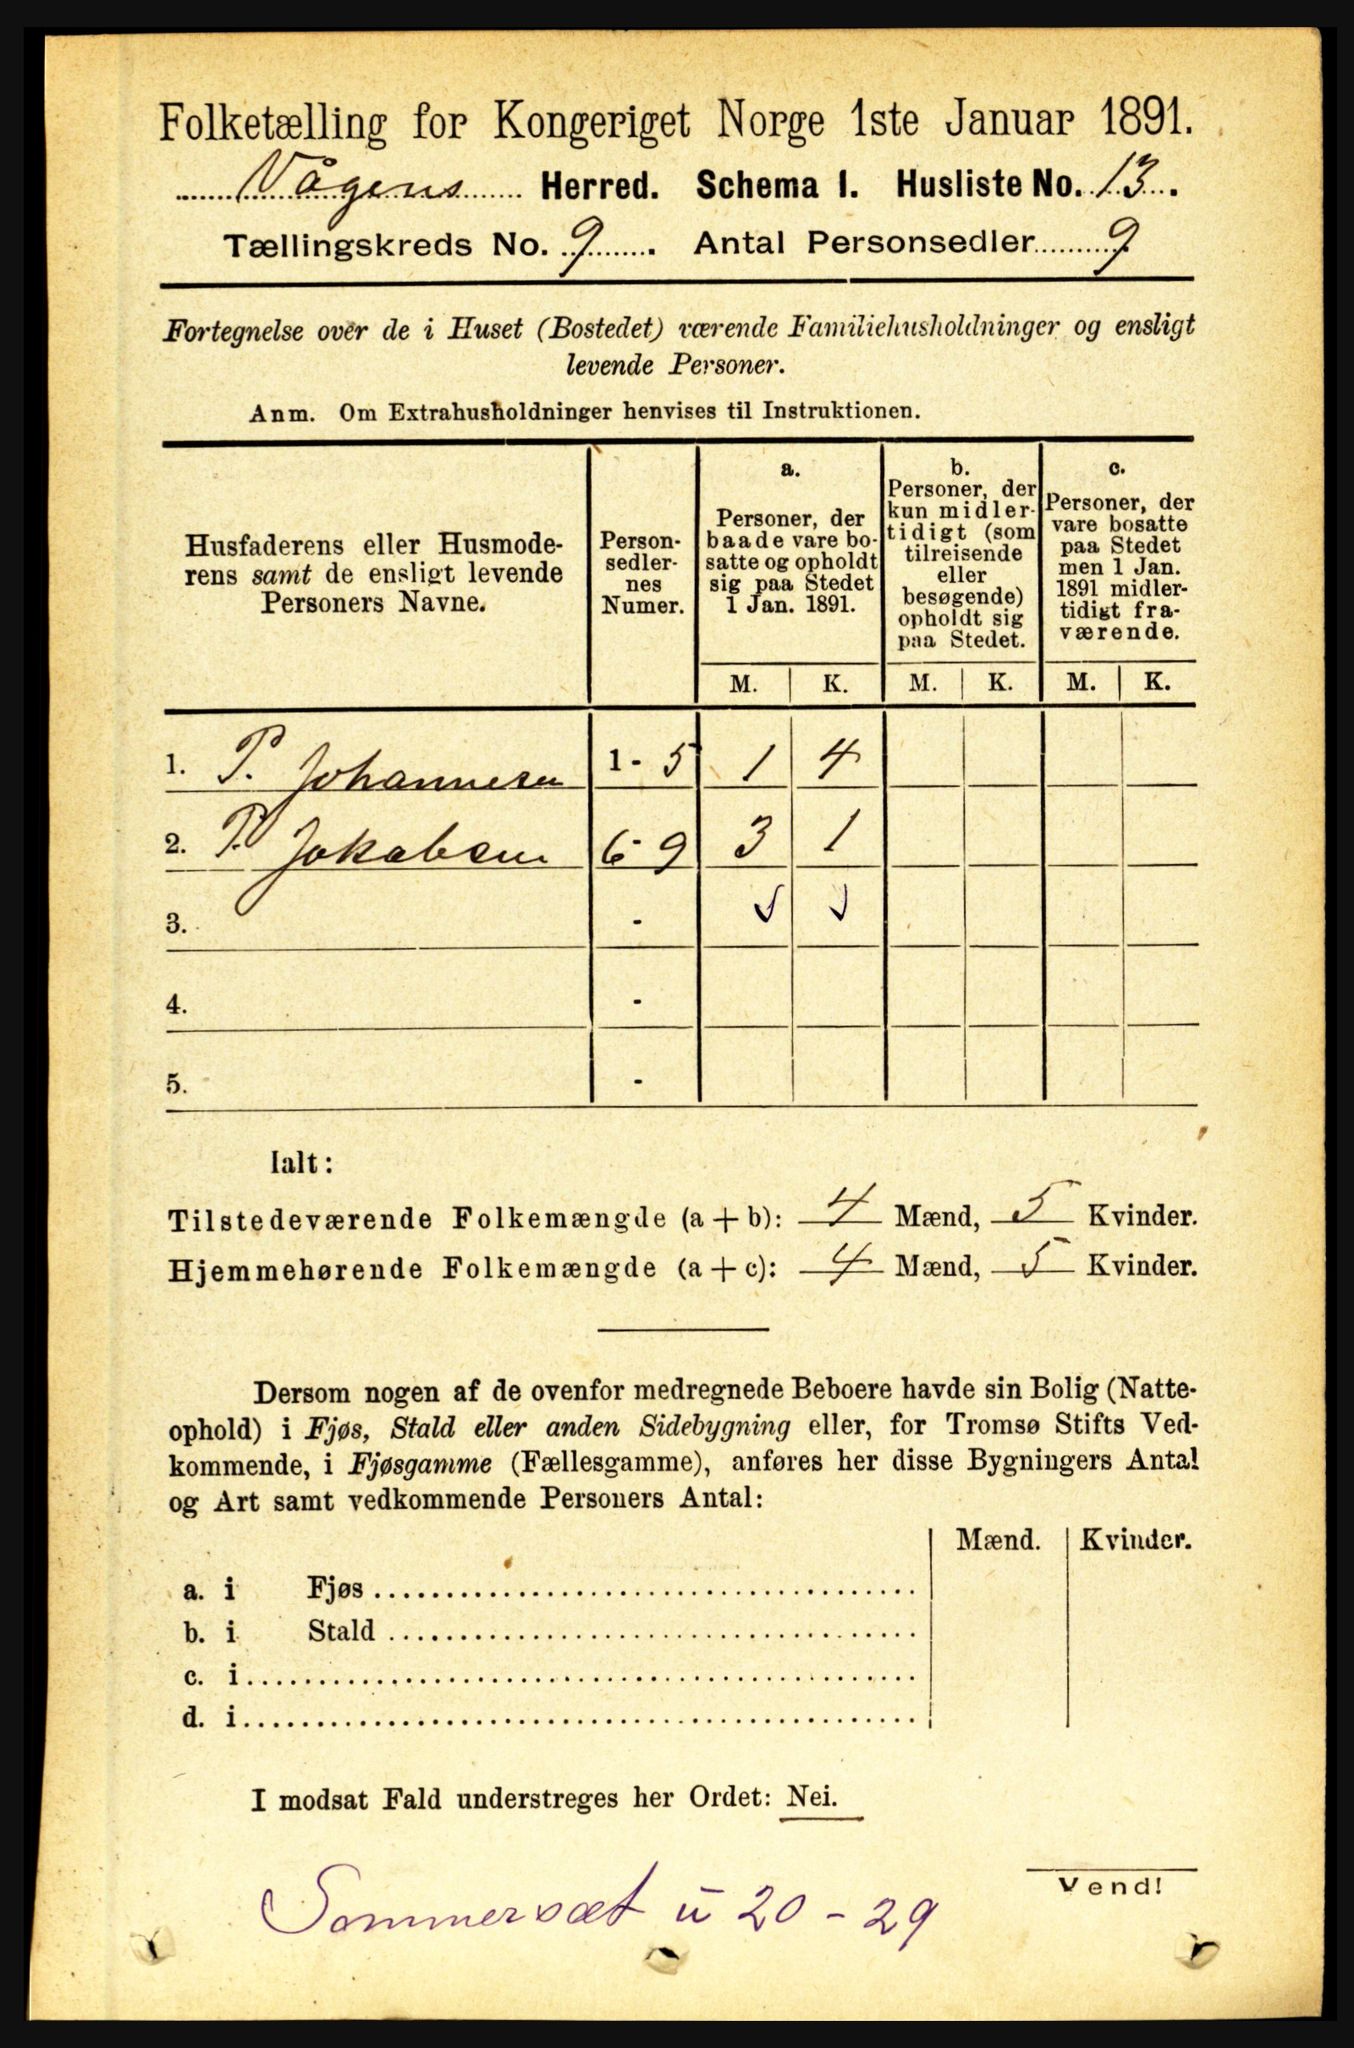 Folketælling for Kongeriget Norge 1ste Januar 1891.
Vågens Herred. Schema 1. Husliste No. 13.
Tællingskreds No. 9. Antal Personsedler 9
Fortegnelse over de i Huset (Bostedet) værende Familiehusholdninger og ensligt
levende Personer.
Anm. Om Extrahusholdninger henvises til Instruktionen.
Husfaderens eller Husmode-
rens samt de ensligt levende
Personers Navne.
Person-
sedler-
nes
Numer.
a.
Personer, der
baade vare bo-
satte og opholdt
sig paa Stedet
1 Jan. 1891.
b.
Personer, der
kun midler-
tidigt (som
tilreisende
eller
besøgende)
opholdt sig
paa Stedet.
c.
Personer, der
vare bosatte
paa Stedet
men 1 Jan.
1891 midler-
tidigt fra-
værende.
M. K. M. K. M. K.
1. P. Johannesen 1 - 5 1 4
2. P. Jokabsen 6 - 9 3 1
3. -
4. -
5. -
Ialt:
Tilstedeværende Folkemængde (a + b): 4 Mænd, 5 Kvinder.
Hjemmehørende Folkemængde (a + c): 4 Mænd, 5 Kvinder.
Dersom nogen af de ovenfor medregnede Beboere havde sin Bolig (Natte-
ophold) i Fjøs, Stald eller anden Sidebygning eller, for Tromsø Stifts Ved-
kommende, i Fjøsgamme (Fællesgamme), anføres her disse Bygningers Antal
og Art samt vedkommende Personers Antal:
Mænd. Kvinder.
a. i Fjøs
b. i Stald
c. i
d. i
I modsat Fald understreges her Ordet: Nei.
Vend!
Sommersæt u 20 - 29